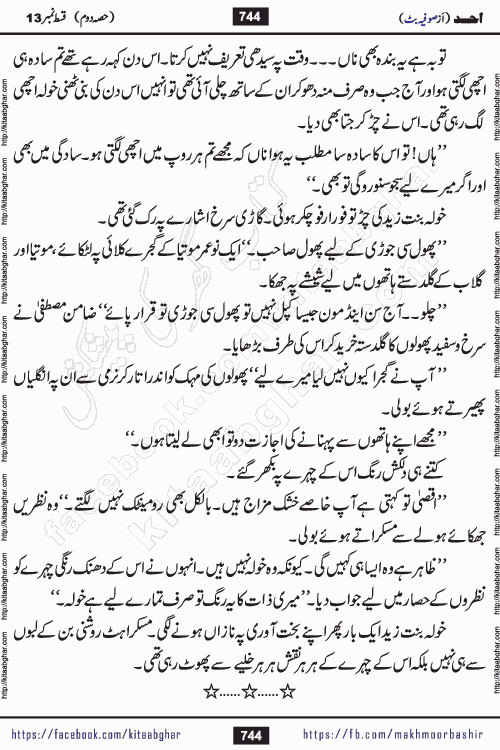 احمد (از صوفیہ بٹ) 744 (حصہ دوم) قسط نمبر 13
توبہ ہے یہ بندہ بھی ناں ۔۔۔ وقت پہ سیدھی تعریف نہیں کرتا۔ اس دن کہہ رہے تھے تم سادہ ہی
اچھی لگتی ہو اور آج جب وہ صرف منہ دھو کر ان کے ساتھ چلی آئی تھی تو انہیں اس دن کی بنی ٹھنی خولہ اچھی
لگ رہی تھی۔ اس نے چڑ کر جتا بھی دیا۔
’’ہاں! تو اس کا سادہ سا مطلب یہ ہوا ناں کہ مجھے تم ہر روپ میں اچھی لگتی ہو۔ سادگی میں بھی
اور اگر میرے لیے سجو سنورو گی تو بھی۔‘‘
خولہ بنت زید کی چڑ تو فورا رفو چکر ہوئی۔ گاڑی سرخ اشارے پہ رک گئی تھی۔
’’پھول سی جوڑی کے لیے پھول صاحب۔‘‘ ایک نو عمر موتیا کے گجرے کلائی پہ لٹکائے، موتیا اور
گلاب کے گلدستے ہاتھوں میں لیے شیشے پہ جھکا۔
’’چلو۔۔ آج سن اینڈ مون جیسا کپل نہیں تو پھول سی جوڑی تو قرار پائے‘‘ ضامن مصطفیٰ نے
سرخ و سفید پھولوں کا گلدستہ خرید کر اس کی طرف بڑھایا۔
’’آپ نے گجرا کیوں نہیں لیا میرے لیے‘‘ پھولوں کی مہک کو اندر اتار کر نرمی سے ان پہ انگلیاں
پھیرتے ہوئے بولی۔
’’مجھے اپنے ہاتھوں سے پہنانے کی اجازت دو تو ابھی لے لیتا ہوں۔‘‘
کتنے ہی دلکش رنگ اس کے چہرے پہ بکھر گئے۔
’’اقصیٰ تو کہتی ہے آپ خاصے خشک مزاج ہیں۔ بالکل بھی رومینٹک نہیں لگتے۔‘‘ وہ نظریں
جھکائے ہولے سے مسکراتے ہوئے بولی۔
’’ظاہر ہے وہ ایسا ہی کہیں گی۔ کیونکہ وہ خولہ نہیں ہیں۔ انہوں نے اس کے دھنک رنگی چہرے کو
نظروں کے حصار میں لیے جواب دیا۔’’میری ذات کا یہ رنگ تو صرف تمہارے لیے ہے خولہ۔‘‘
خولہ بنت زید ایک بار پھر اپنے بخت آوری پہ نازاں ہونے لگی۔ مسکراہٹ روشنی بن کے لبوں
سے ہی نہیں بلکہ اس کے چہرے کے ہر ہر نقش ہر ہر خلیے سے پھوٹ رہی تھی۔
☆......☆......☆
https://facebook.com/kitaabghar 744 https://fb.com/makhmoorbashir
http://kitaabghar.com
کتاب گھر کی پیشکش
facebook.com/kitaabghar
kitaabghar.com